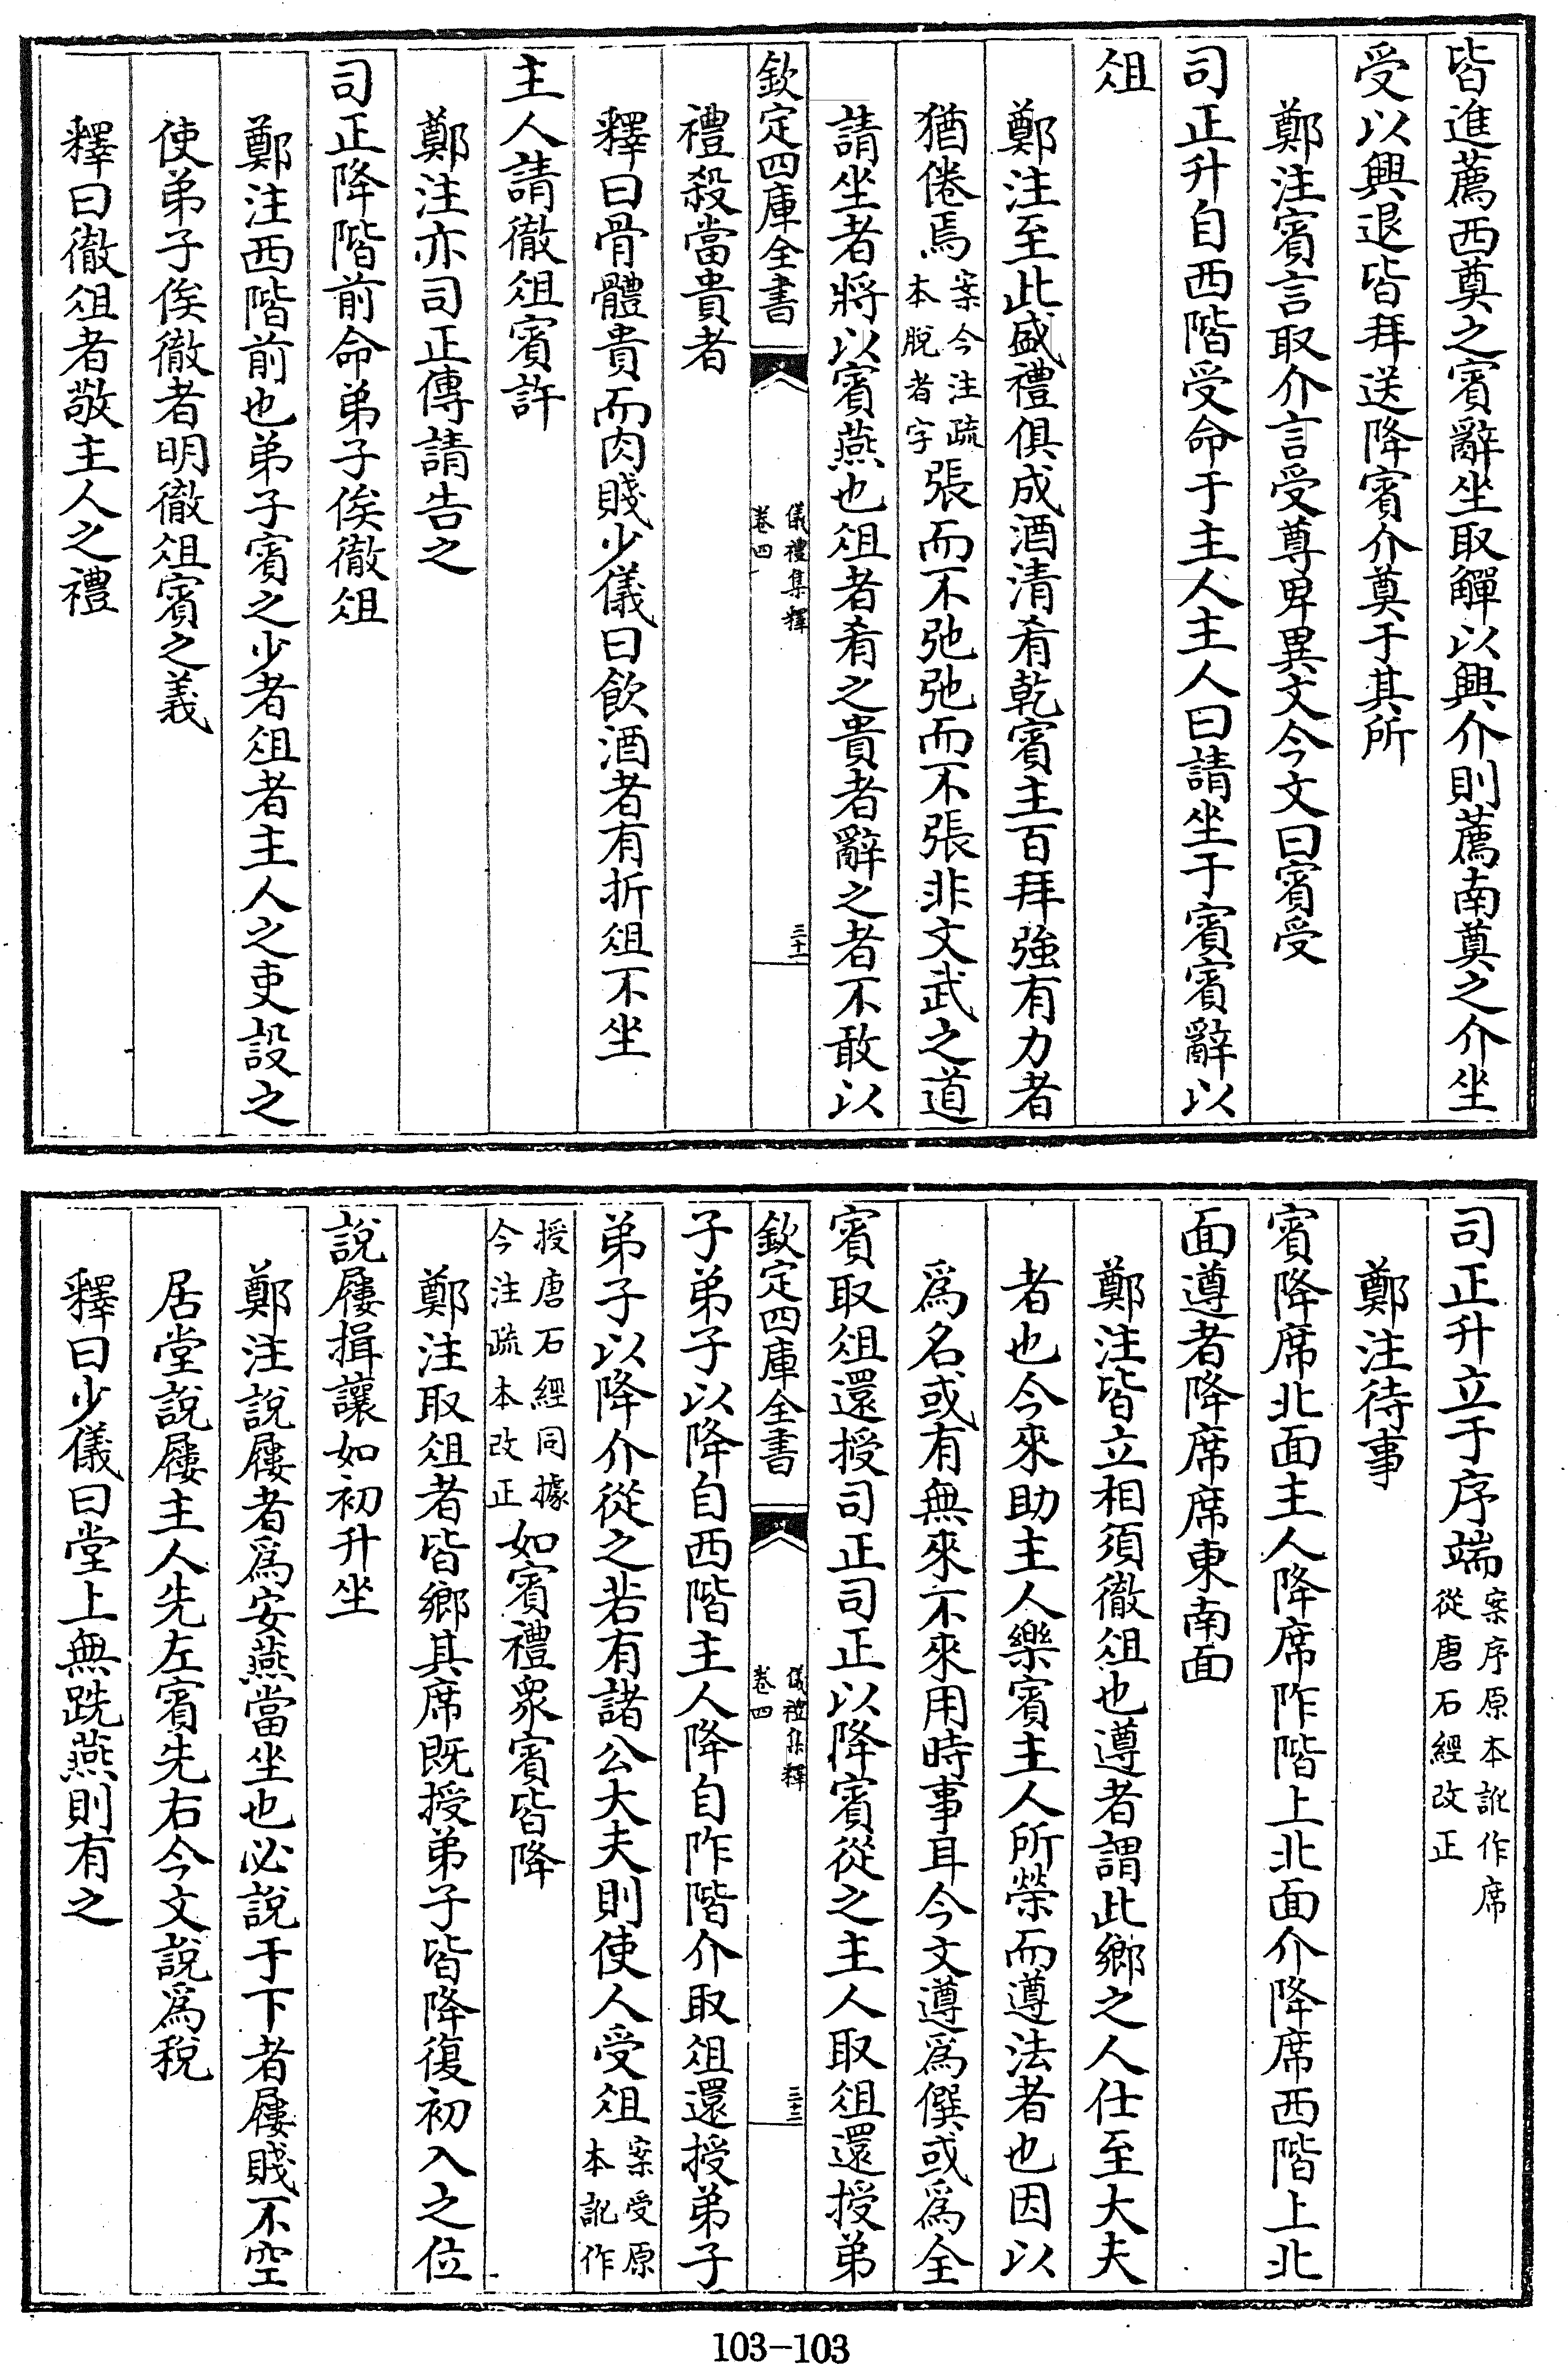 皆進薦西奠之賓辭坐取觶以興介則薦南奠之介坐
受以興退皆拜送降賓介奠于其所
鄭注賓言取介言受尊卑異文今文曰賓受
司正升自西階受命于主人主人曰請坐于賓賓辭以
俎
鄭注至此盛禮俱成酒清肴乾賓主百拜強有力者
猶倦焉案今注疏本脫者字張而不弛弛而不張非文武之道
請坐者將以賓燕也俎者肴之貴者辭之者不敢以
欽定四庫全書
儀禮集釋
卷四
三十一
禮殺當貴者
釋曰骨體貴而肉賤少儀曰飲酒者有折俎不坐
主人請徹俎賓許
鄭注亦司正傳請告之
司正降階前命弟子俟徹俎
鄭注西階前也弟子賓之少者俎者主人之吏設之
使弟子俟徹者明徹俎賓之義
釋曰徹俎者敬主人之禮
司正升立于序端案序原本訛作席從唐石經改正
鄭注待事
賓降席北面主人降席阼階上北面介降席西階上北
面遵者降席席東南面
鄭注皆立相須徹俎也遵者謂此鄉之人仕至大夫
者也今來助主人樂賓主人所榮而遵法者也因以
爲名或有無來不來用時事耳今文遵爲僎或爲全
賓取俎還授司正司正以降賓從之主人取俎還授弟
欽定四庫全書
儀禮集釋
卷四
三十二
子弟子以降自西階主人降自阼階介取俎還授弟子
弟子以降介從之若有諸公大夫則使人受俎案受原本訛作
授唐石經同據今注疏本改正如賓禮衆賓皆降
鄭注取俎者皆鄉其席既授弟子皆降復初入之位
說屨揖讓如初升坐
鄭注說屨者爲安燕當坐也必說于下者屨賤不空
居堂說屨主人先左賓先右今文說爲稅
釋曰少儀曰堂上無跣燕則有之
103-103